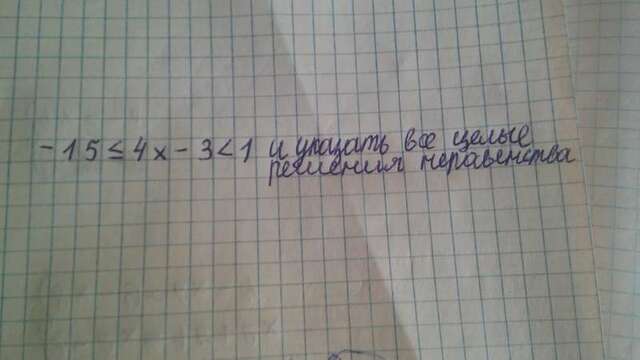 -15≤4x-3<1 и указать все целые
решения неравенства